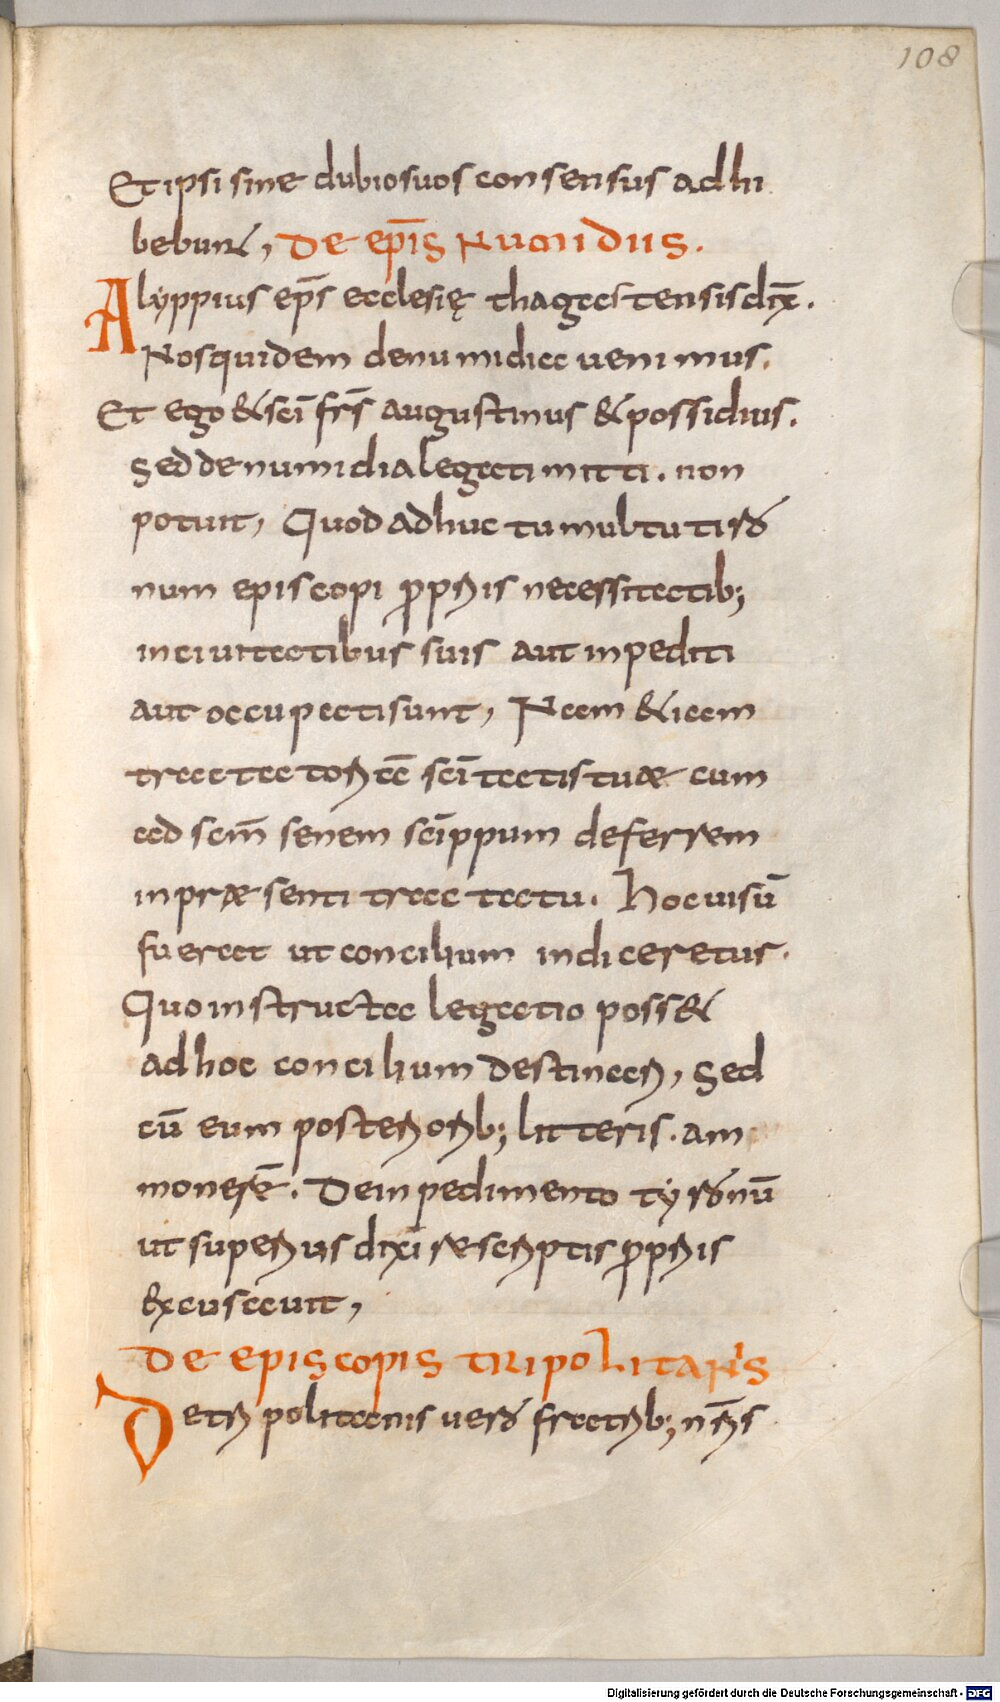 108
Et ipsi sine dubio suos consensus adhi
bebunt, De ep̄is Numidiis.
Alyppius ep̄s ecclesię thagastensis dix̄.
Nos quidem de numidia uenimus.
Et ego & sc̄i fr̄s augustinus & possidius.
Sed de numidia legati mitti. non
potuit, Quod adhuc tumultu tiro
num episcopi p̄priis necessitatib;
in ciuitatibus suis aut inpediti
aut occupati sunt, Nam & iam
tractatoriā sc̄itatis tuæ cum
ad sc̄m senem sc̄ippum deferrem
in præsenti tractatu. hoc uisū
fuerat ut concilium indiceretur.
Quo instructa legatio poss&
ad hoc concilium destinari, Sed
cū eum posteriorib; litteris. am
monerē. De inpedimento tyronū
ut superius dixi rescriptis p̄priis
&xcusauit,
De episcopis tripolitanis
De tripolitanis uero fratrib; nr̄is
Digitalisierung gefördert durch die Deutsche Forschungsgemeinschaft - DFG